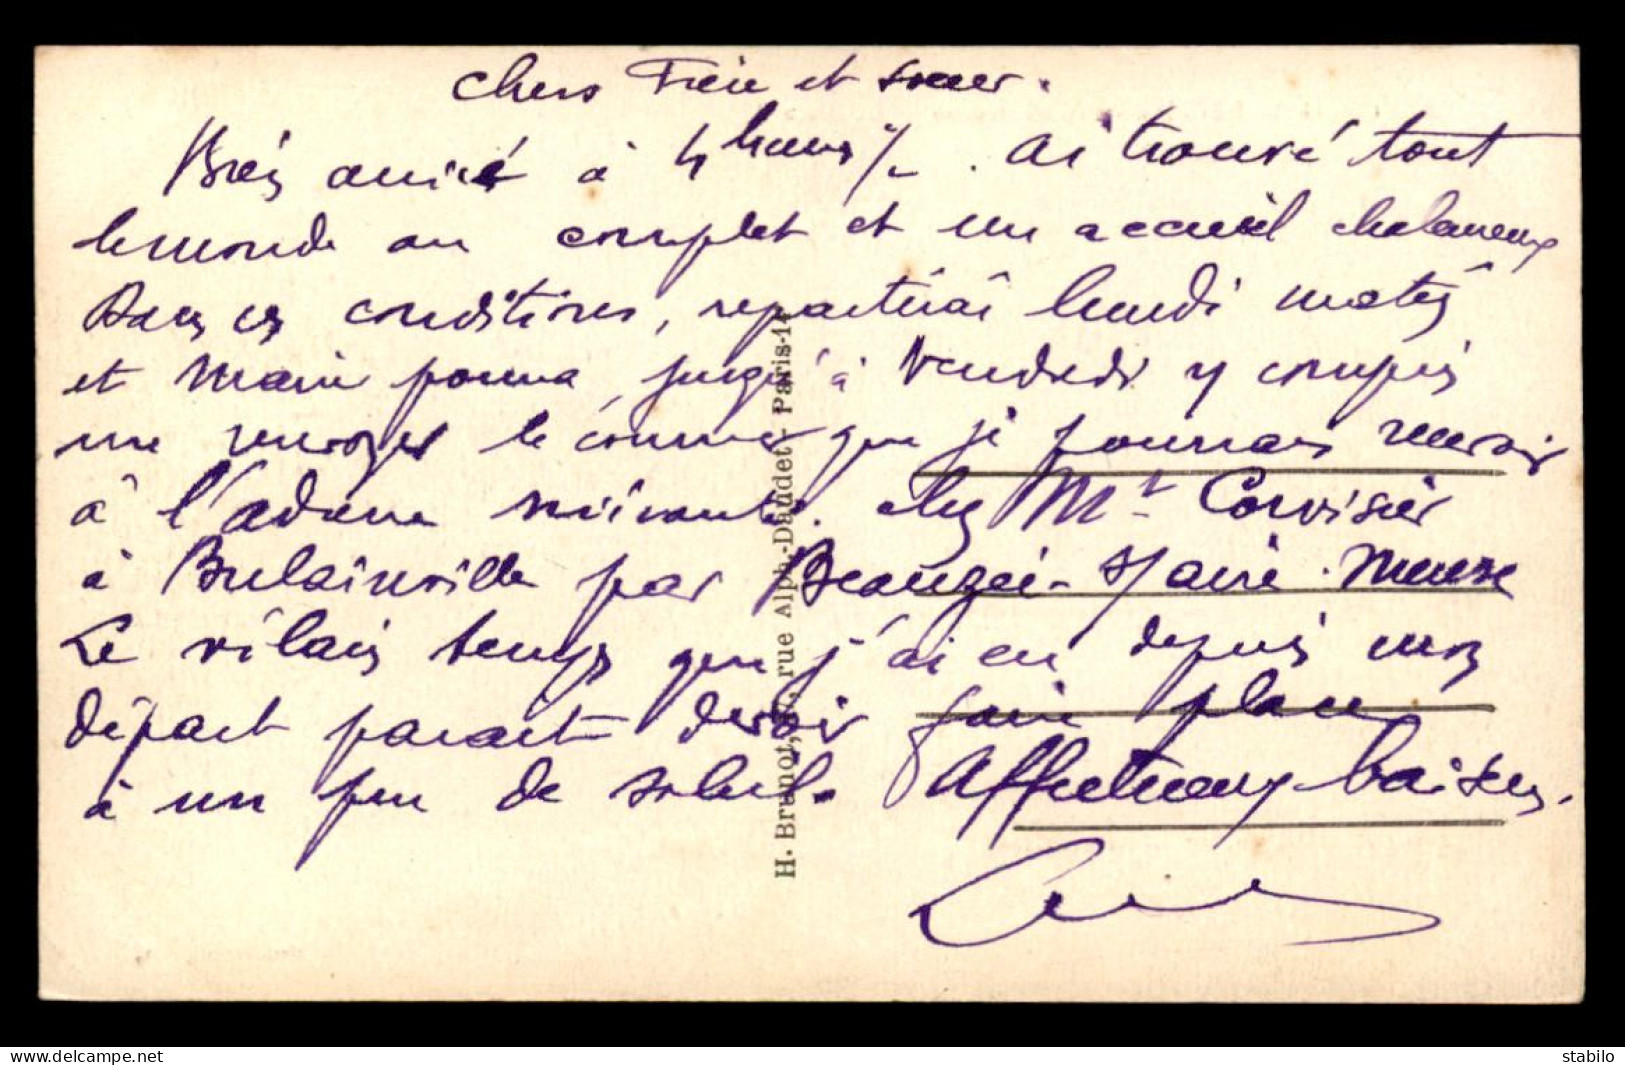 Chers Frère et soeur.
Bien arrivé à 4 heures 1/2. Ai trouvé tout
le monde au complet et un accueil chaleureux
Dans ces conditions, repartirai lundi matin
et Marie pourra jusqu'à Vendredi y compris
me renvoyer le courrier que je pourrais recevoir
à l'adresse suivante. chez Mr Corvisier
à Bulainville par Beauzée-s/aire. Meuse
Le vilain temps que j'ai eu depuis mon
départ parait devoir faire place
à un peu de soleil. Affectueux baisers.
H. Brunot, rue Alph.-Daudet - Paris-14
delcampe.net
stabilo